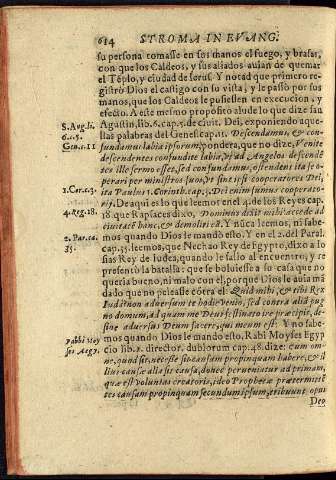 614 STROMA IN EVANG.
su persona tomasse en sus manos el fuego, y brasas,
con que los Caldeos, y sus aliados auian de quemar
el Tẽplo, y ciudad de Ierus. Y notad que primero re-
gistrò Dios el castigo con su vista, y le passò por sus
manos, que los Caldeos le pusiessen en execucion, y
efecto. A este mismo proposito alude lo que dize san
S. Aug. li. Agustin, lib. 6. cap. 5. de ciuit. Dei. exponiendo aque-
6. c. 5. llas palabras del Genes. cap. 11. Descendamus, & con-
Gen. c. 11 fundamus labia ipsorum; pondera, que no dize, Venite
descendentes confundite labia, sed ad Angelos descendẽ
tes ille sermo esset, sed confundamus, ostendens ita se o-
perari per ministros suos, ut sint ipsi cooperatores Dei,
1. Cor. c. 3. ita Paulus 1. Corinth. cap. 3. Dei enim sumus cooperato-
res. De aqui es lo que leemos en el 4. de los Reyes cap.
4. Reg. 18. 18. que Rapsaces dixo, Dominus dixit mihi ascende ad
ciuitatẽ hanc, & demolire eã. Y nũca leemos, ni sabe-
mos quando Dios le mandò esto. Y en el 2. del Paral.
2. Par. ca. cap. 35. leemos, que Nechao Rey de Egypto, dixo a Io
35. sias Rey de Iudea, quando le salio al encuentro, y se
presentò la batalla: que se boluiesse a su casa que no
queria bueno, ni malo con el, porque Dios le auia mã
dado que no pelease còtra el Quid mihi, & tibi Rex
Iuda? non aduersum te hodie venio, sed contra aliã pug
no domum, ad quam me Deus festinato ire præcipit, de-
sine aduersus Deum facere, qui mecum est. Y no sabe-
Rabbi Moy mos quando Dios le mandò esto. Rabi Moyses Egyp
ses Aegy. cio lib. 2. director. dubiorum cap. 48. dize: cum om-
ne, quod sit, necesse sit causam propinquam habere, & il
lius causæ alia sit causa, donec perueniatur ad primam,
quæ est voluntas creatoris, ideo Prophetæ prætermittẽ
tes causam propinquam secundum ipsum, tribuunt opus
Deo